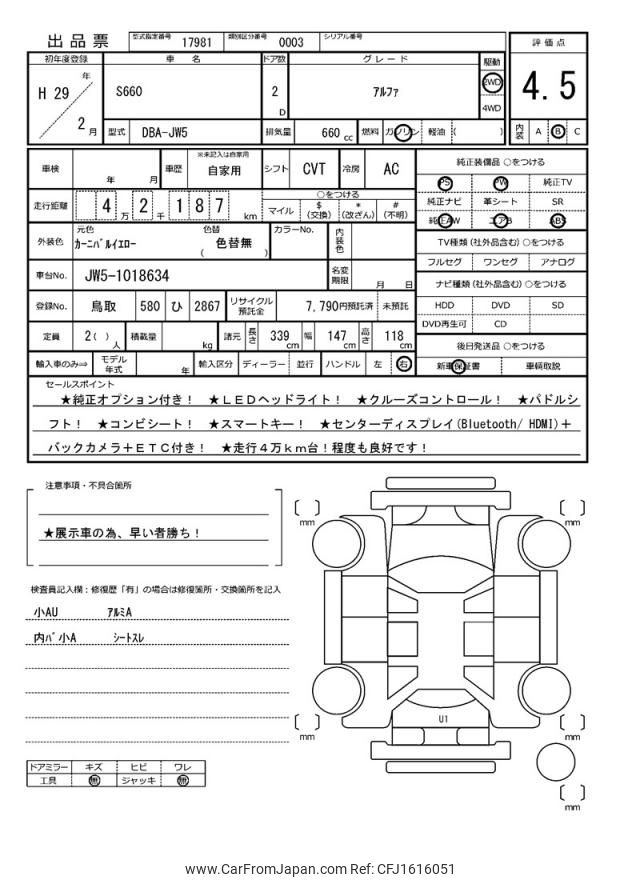 出品票 型式指定番号 17981 類別区分番号 0003 シリアル番号
初年度登録 車名 ドア数 グレード 駆動 評価点
H 29 年 2 月 S660 2 D アルファ 2WD 4WD 4.5
型式 DBA-JW5 排気量 660 cc 燃料 ガソリン 軽油 ( ) 内装 A B C
車検 年 月 車歴 ※未記入は自家用 自家用 シフト CVT 冷房 AC
走行距離 4 万 2 千 1 8 7 km ○をつける
マイル $ (交換) * (改ざん) # (不明)
外装色 元色 カーニバルイエロー 色替 ( 色替無 ) カラーNo. 内装色
車台No. JW5-1018634 名変期限 月 日
登録No. 鳥取 580 ひ 2867 リサイクル預託金 7,790円預託済 未預託
定員 2( )人 積載量 kg 諸元 長さ 339 cm 幅 147 cm 高さ 118 cm
輸入車のみ⇨ モデル年式 年 輸入区分 ディーラー 並行 ハンドル 左 右
純正装備品 ○をつける
PS PW 純正TV
純正ナビ 革シート SR
純正AW エアB ABS
TV種類 (社外品含む) ○をつける
フルセグ ワンセグ アナログ
ナビ種類 (社外品含む) ○をつける
HDD DVD SD
DVD再生可 CD
後日発送品 ○をつける
新車保証書 車輌取説
セールスポイント
★純正オプション付き! ★LEDヘッドライト! ★クルーズコントロール! ★パドルシ
フト! ★コンビシート! ★スマートキー! ★センターディスプレイ(Bluetooth/ HDMI)+
バックカメラ+ETC付き! ★走行4万km台!程度も良好です!
注意事項・不具合箇所
★展示車の為、早い者勝ち!
検査員記入欄:修復歴「有」の場合は修復箇所・交換箇所を記入
小AU アルミA
内バ小A シートスレ
ドアミラー キズ ヒビ ワレ
工具 無 ジャッキ 無
mm
mm
U1
mm
mm
mm
www.CarFromJapan.com Ref: CFJ1616051